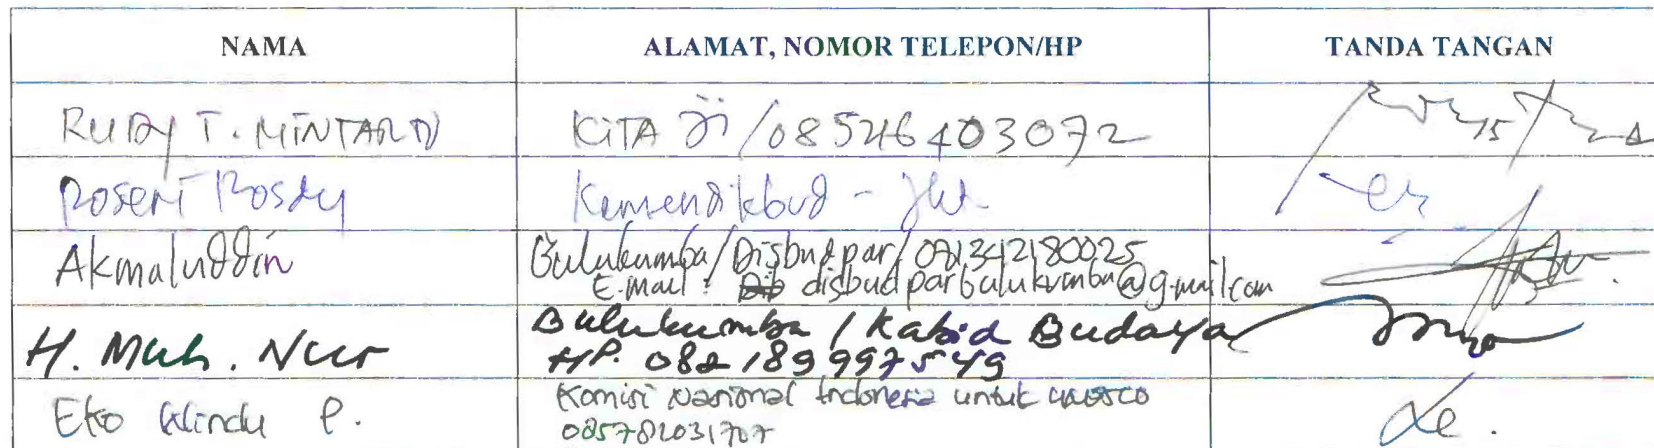 NAMA ALAMAT, NOMOR TELEPON/HP TANDA TANGAN
RUDY T. MINTARTO KITA Ji /08526403072
Roseri Rosdy Kemendikbud - Jkt
Akmaluddin Bulukumba/Disbudpar/081342180025
E-mail : disbudparbulukumba@gmail.com
H. Muh. Nur Bulukumba / Kabid Budaya
HP. 082 189 997 549
Eko Windu P. Komisi Nasional Indonesia untuk UNESCO
085782031707